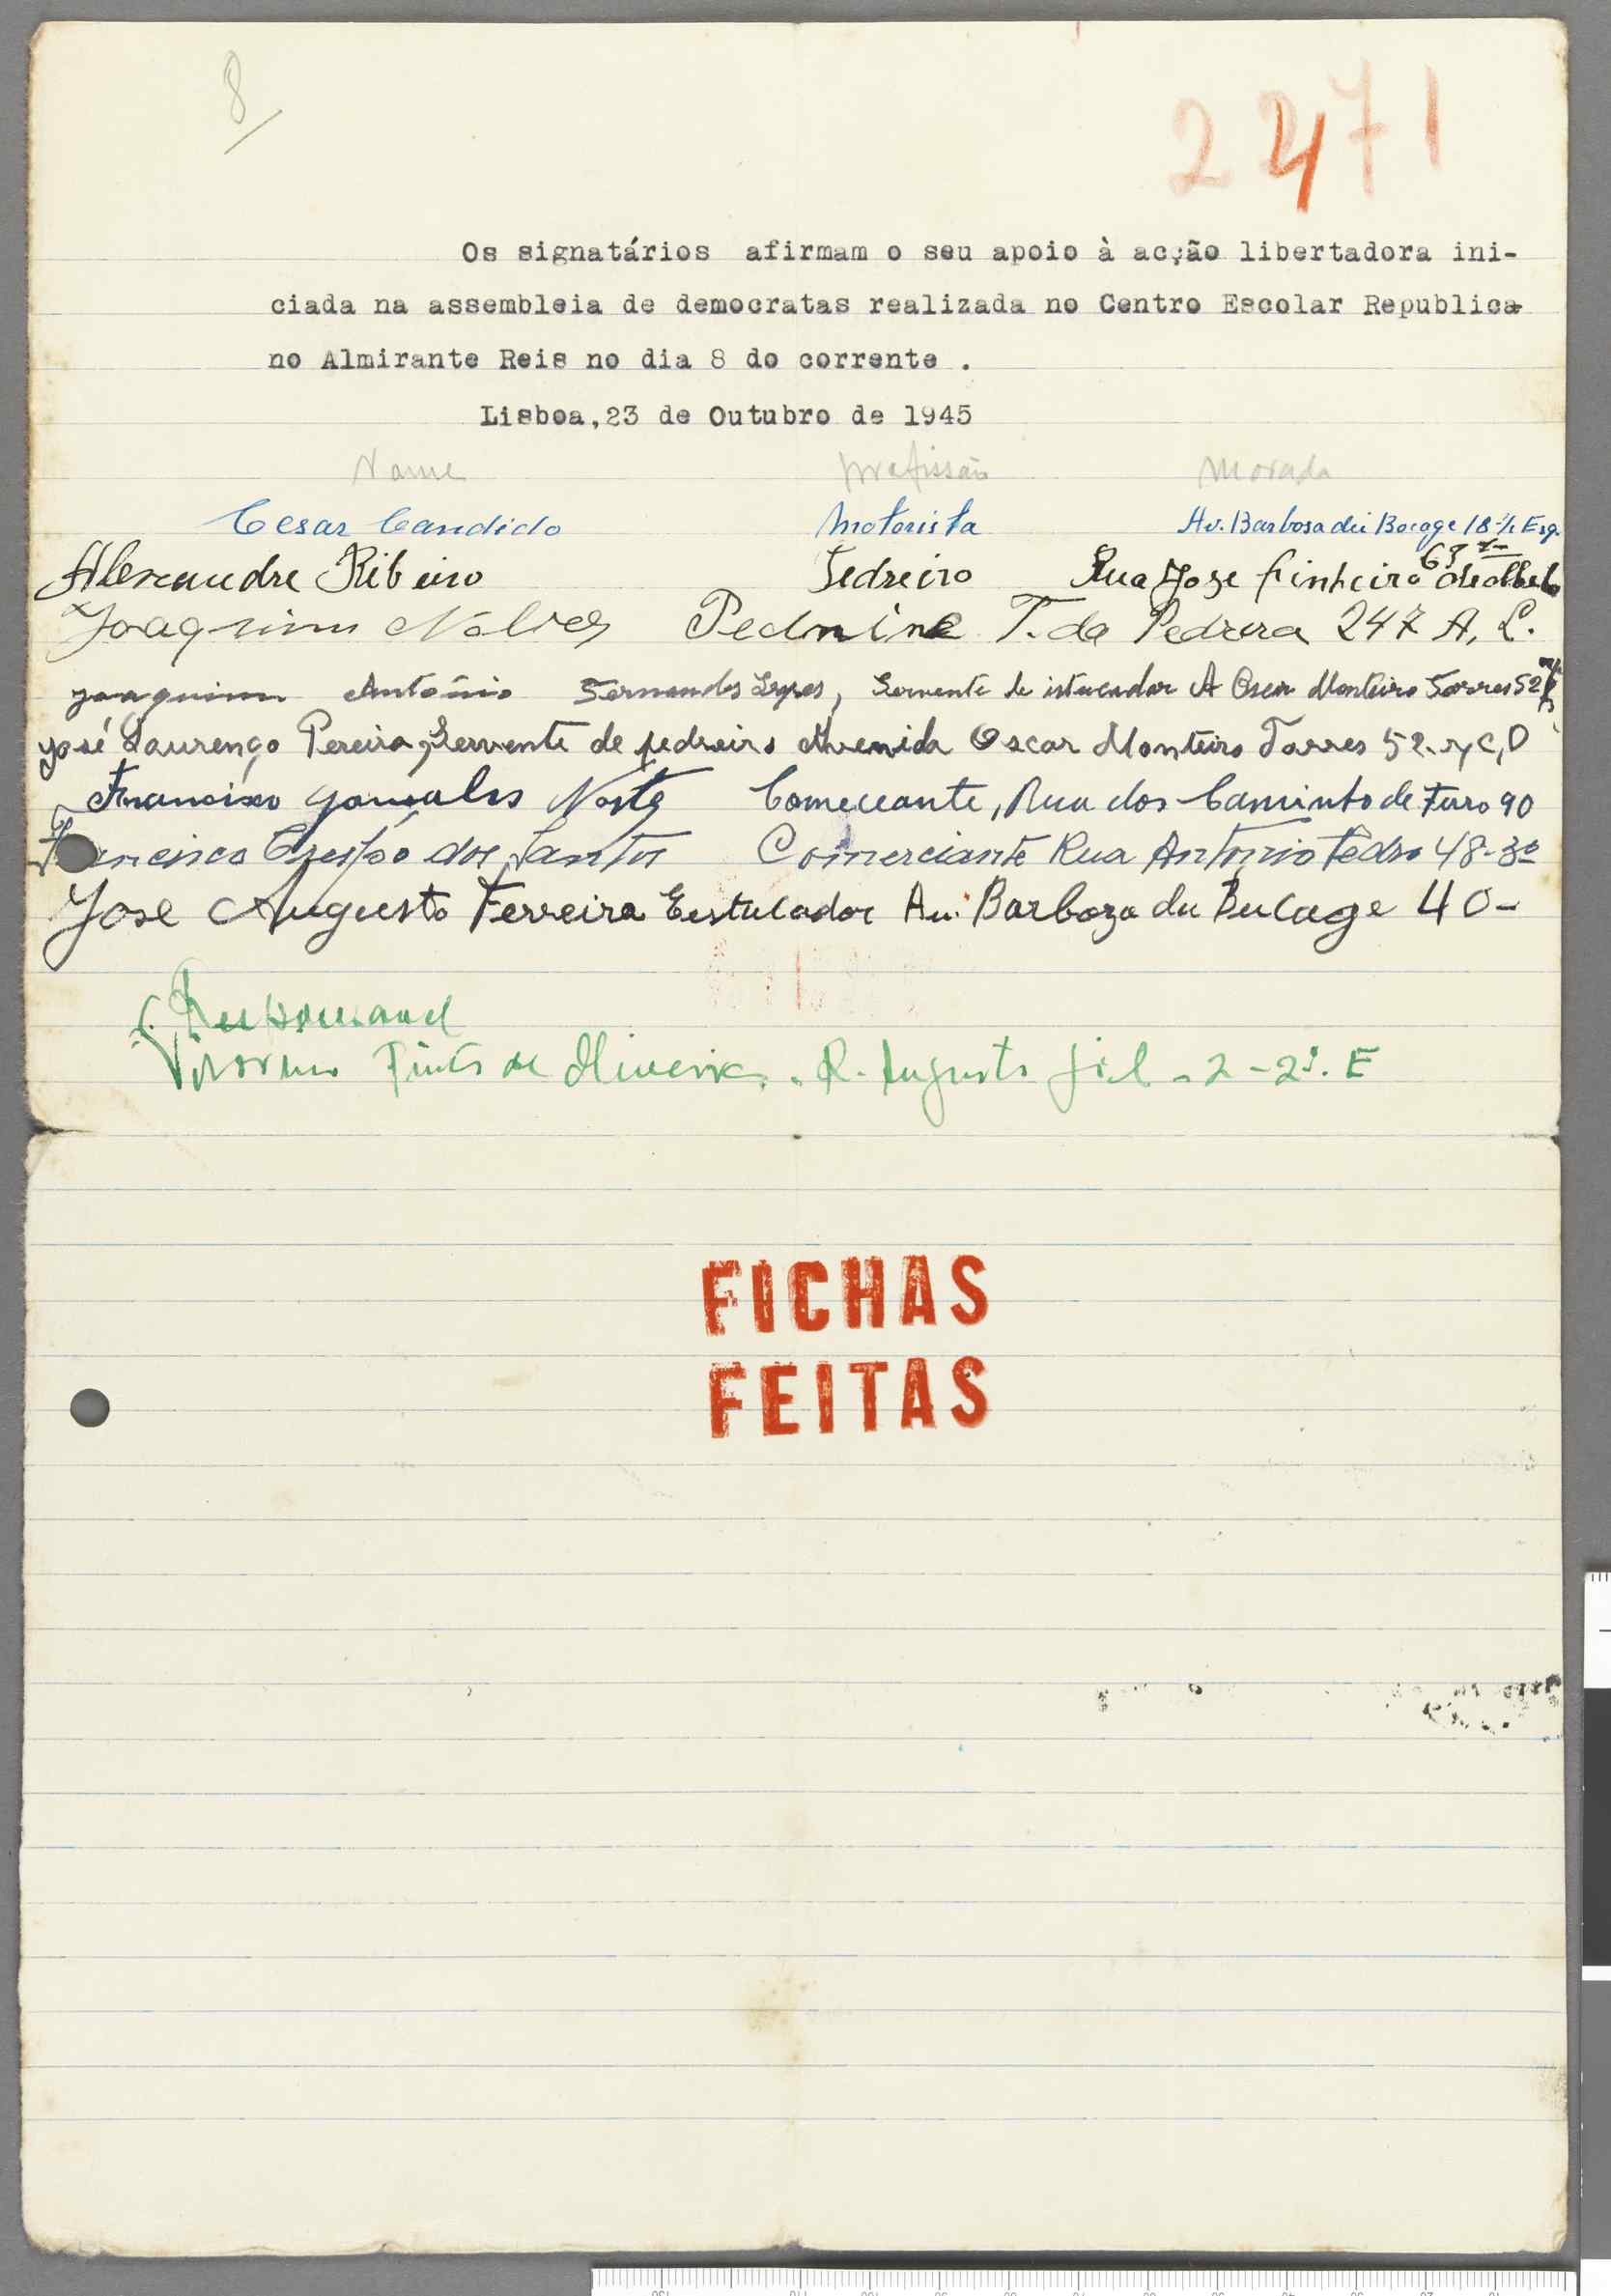 8
2271
Os signatários afirmam o seu apoio à acção libertadora ini-
ciada na assembleia de democratas realizada no Centro Escolar Republica-
no Almirante Reis no dia 8 do corrente .
Lisboa,23 de Outubro de 1945
Nome profissão Morada
Cesar Candido Motorista Av. Barbosa du Bocage 18 Esq.
Alexandre Ribeiro Pedreiro Rua Jose Pinheiro de Melo 63
Joaquim Pedrine T. da Pedrera 247 A, L.
Joaquim António Fernandes Lopes, Servente de istucador A Oscar Monteiro Torres 52
José Lourenço Pereira, Servente de pedreiro Avenida Oscar Monteiro Torres 52 r/c, D
Francisco Gonsalves Comerciante, Rua dos Caminho de Ferro 90
Francisco Crespo dos Santos Comerciante Rua António Pedro 48-3º
Jose Augusto Ferreira Eestucador Av. Barboza du Bucage 40-
Vitorino Pinto de Oliveira - R. Augusto Gil - 2 - 2º. E
FICHAS
FEITAS